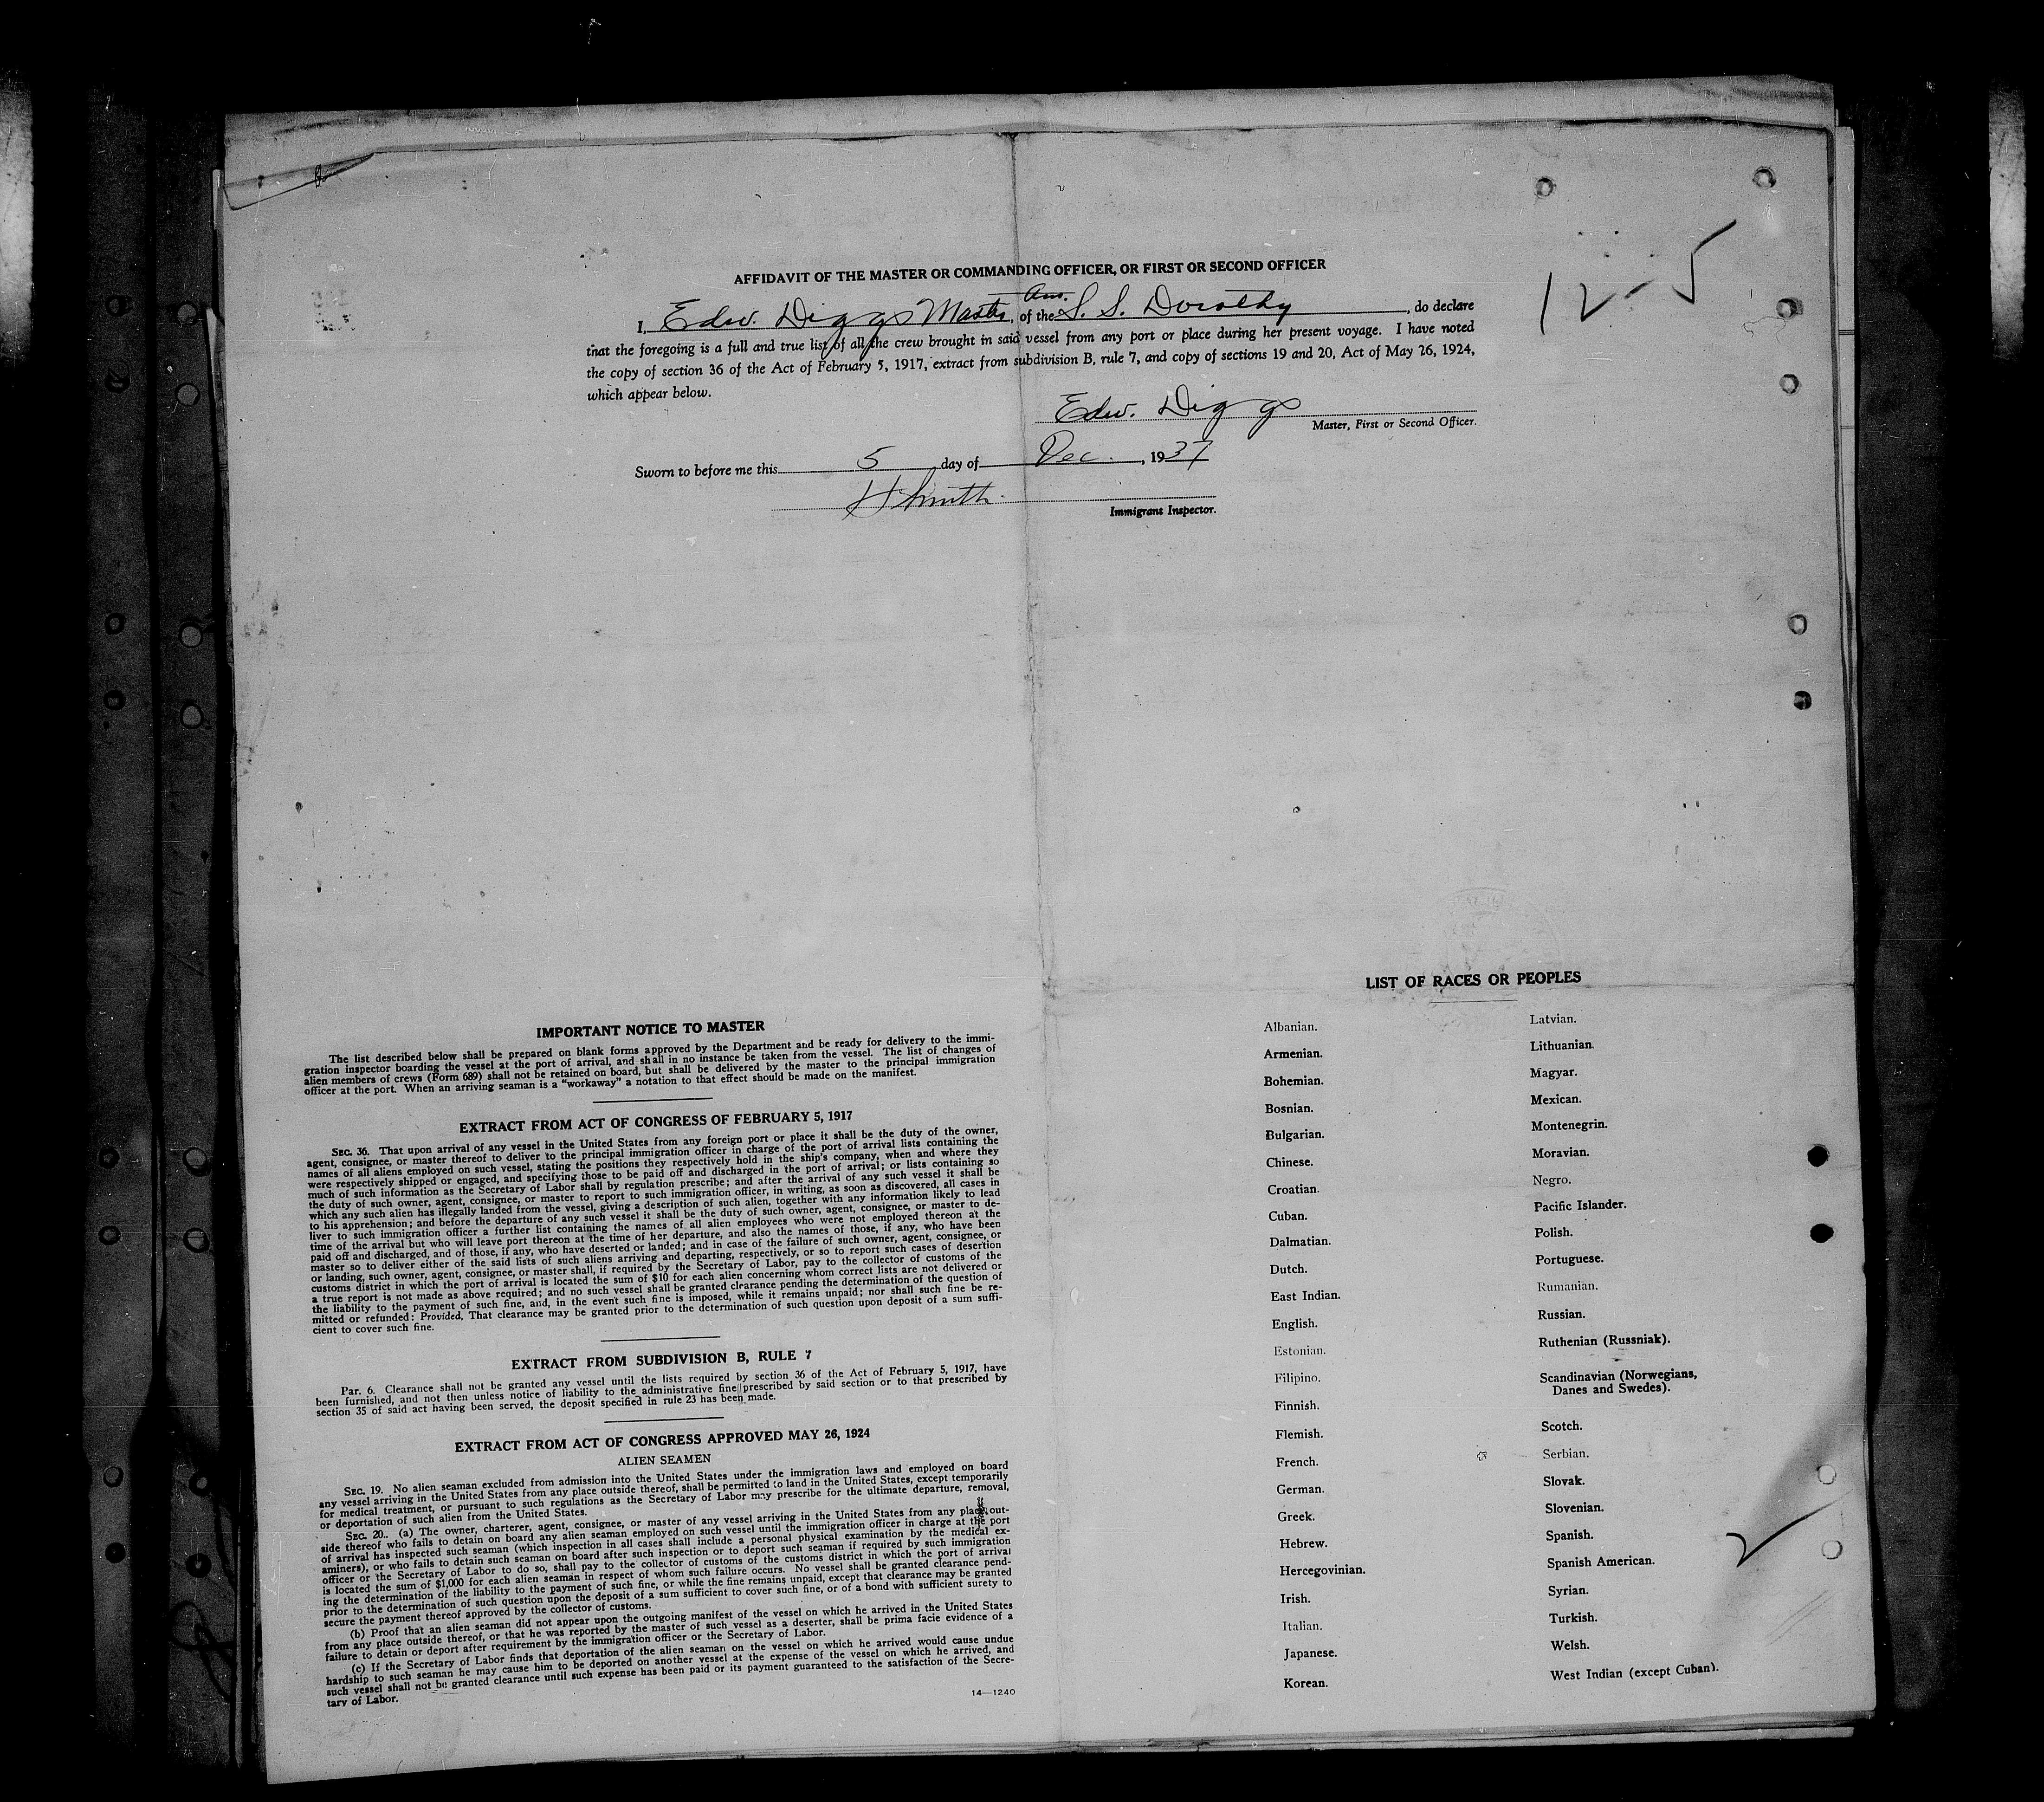 12-5
AFFIDAVIT OF THE MASTER OR COMMANDING OFFICER, OR FIRST OR SECOND OFFICER
Am.
I, Edw. Diggs Master, of the S. S. Dorothy, do declare
that the foregoing is a full and true list of all the crew brought in said vessel from any port or place during her present voyage. I have noted
the copy of section 36 of the Act of February 5, 1917, extract from subdivision B, rule 7, and copy of sections 19 and 20, Act of May 26, 1924,
which appear below.
Edw. Diggs
Master, First or Second Officer.
Sworn to before me this 5 day of Dec., 1937
H Smith
Immigrant Inspector.
IMPORTANT NOTICE TO MASTER
The list described below shall be prepared on blank forms approved by the Department and be ready for delivery to the immi-
gration inspector boarding the vessel at the port of arrival, and shall in no instance be taken from the vessel. The list of changes of
alien members of crews (Form 689) shall not be retained on board, but shall be delivered by the master to the principal immigration
officer at the port. When an arriving seaman is a "workaway" a notation to that effect should be made on the manifest.
EXTRACT FROM ACT OF CONGRESS OF FEBRUARY 5, 1917
SEC. 36. That upon arrival of any vessel in the United States from any foreign port or place it shall be the duty of the owner,
agent, consignee, or master thereof to deliver to the principal immigration officer in charge of the port of arrival lists containing the
names of all aliens employed on such vessel, stating the positions they respectively hold in the ship's company, when and where they
were respectively shipped or engaged, and specifying those to be paid off and discharged in the port of arrival; or lists containing so
much of such information as the Secretary of Labor shall by regulation prescribe; and after the arrival of any such vessel it shall be
the duty of such owner, agent, consignee, or master to report to such immigration officer, in writing, as soon as discovered, all cases in
which any such alien has illegally landed from the vessel, giving a description of such alien, together with any information likely to lead
to his apprehension; and before the departure of any such vessel it shall be the duty of such owner, agent, consignee, or master to de-
liver to such immigration officer a further list containing the names of all alien employees who were not employed thereon at the
time of the arrival but who will leave port thereon at the time of her departure, and also the names of those, if any, who have been
paid off and discharged, and of those, if any, who have deserted or landed; and in case of the failure of such owner, agent, consignee, or
master so to deliver either of the said lists of such aliens arriving and departing, respectively, or so to report such cases of desertion
or landing, such owner, agent, consignee, or master shall, if required by the Secretary of Labor, pay to the collector of customs of the
customs district in which the port of arrival is located the sum of $10 for each alien concerning whom correct lists are not delivered or
a true report is not made as above required; and no such vessel shall be granted clearance pending the determination of the question of
the liability to the payment of such fine, and, in the event such fine is imposed, while it remains unpaid; nor shall such fine be re-
mitted or refunded: Provided, That clearance may be granted prior to the determination of such question upon deposit of a sum suffi-
cient to cover such fine.
EXTRACT FROM SUBDIVISION B, RULE 7
Par. 6. Clearance shall not be granted any vessel until the lists required by section 36 of the Act of February 5, 1917, have
been furnished, and not then unless notice of liability to the administrative fine prescribed by said section or to that prescribed by
section 35 of said act having been served, the deposit specified in rule 23 has been made.
EXTRACT FROM ACT OF CONGRESS APPROVED MAY 26, 1924
ALIEN SEAMEN
SEC. 19. No alien seaman excluded from admission into the United States under the immigration laws and employed on board
any vessel arriving in the United States from any place outside thereof, shall be permitted to land in the United States, except temporarily
for medical treatment, or pursuant to such regulations as the Secretary of Labor may prescribe for the ultimate departure, removal,
or deportation of such alien from the United States.
SEC. 20.. (a) The owner, charterer, agent, consignee, or master of any vessel arriving in the United States from any place out-
side thereof who fails to detain on board any alien seaman employed on such vessel until the immigration officer in charge at the port
of arrival has inspected such seaman (which inspection in all cases shall include a personal physical examination by the medical ex-
aminers), or who fails to detain such seaman on board after such inspection or to deport such seaman if required by such immigration
officer or the Secretary of Labor to do so, shall pay to the collector of customs of the customs district in which the port of arrival
is located the sum of $1,000 for each alien seaman in respect of whom such failure occurs. No vessel shall be granted clearance pend-
ing the determination of the liability to the payment of such fine, or while the fine remains unpaid, except that clearance may be granted
prior to the determination of such question upon the deposit of a sum sufficient to cover such fine, or of a bond with sufficient surety to
secure the payment thereof approved by the collector of customs.
(b) Proof that an alien seaman did not appear upon the outgoing manifest of the vessel on which he arrived in the United States
from any place outside thereof, or that he was reported by the master of such vessel as a deserter, shall be prima facie evidence of a
failure to detain or deport after requirement by the immigration officer or the Secretary of Labor.
(c) If the Secretary of Labor finds that deportation of the alien seaman on the vessel on which he arrived would cause undue
hardship to such seaman he may cause him to be deported on another vessel at the expense of the vessel on which he arrived, and
such vessel shall not be granted clearance until such expense has been paid or its payment guaranteed to the satisfaction of the Secre-
tary of Labor.
14—1240
LIST OF RACES OR PEOPLES
Albanian.
Armenian.
Bohemian.
Bosnian.
Bulgarian.
Chinese.
Croatian.
Cuban.
Dalmatian.
Dutch.
East Indian.
English.
Estonian.
Filipino.
Finnish.
Flemish.
French.
German.
Greek.
Hebrew.
Hercegovinian.
Irish.
Italian.
Japanese.
Korean.
Latvian.
Lithuanian.
Magyar.
Mexican.
Montenegrin.
Moravian.
Negro.
Pacific Islander.
Polish.
Portuguese.
Rumanian.
Russian.
Ruthenian (Russniak).
Scandinavian (Norwegians,
Danes and Swedes).
Scotch.
Serbian.
Slovak.
Slovenian.
Spanish.
Spanish American.
Syrian.
Turkish.
Welsh.
West Indian (except Cuban).